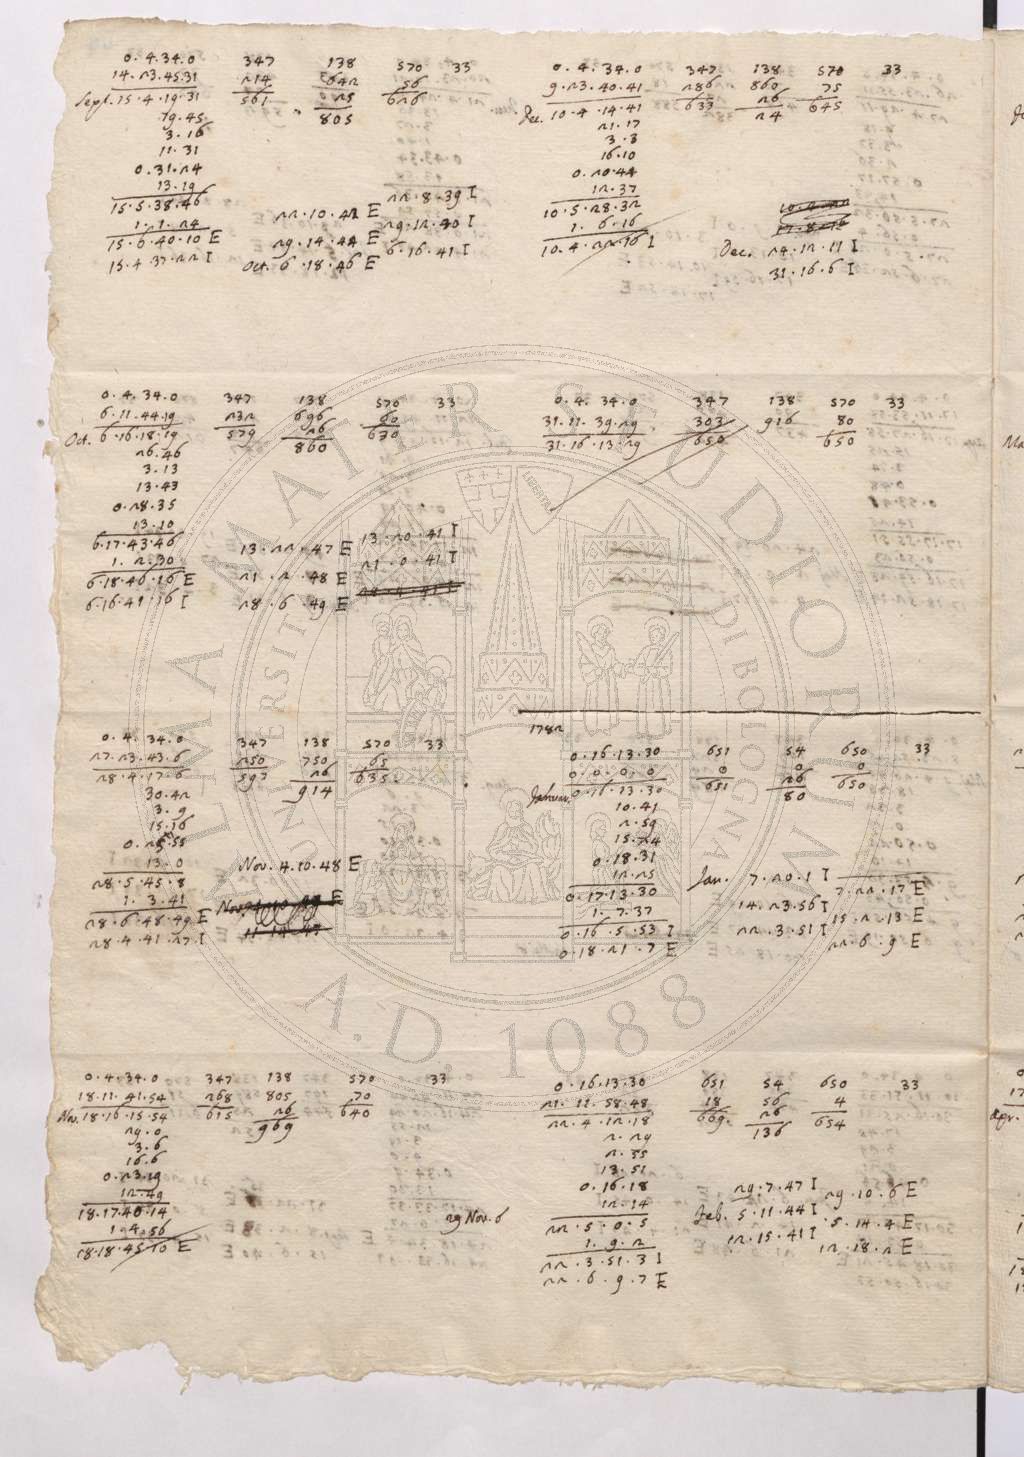 0.4.34.0 347 138 570 33
14.23.45.31 214 642 56
Sept. 15.4.19.31 561 25 626
19.45 805
3.16
11.31
0.31.24
13.19
15.5.38.46
1.1.24
15.6.40.10 E
15.4.37.22 I
22.10.42 E 22.8.39 I
29.14.44 E 29.12.40 I
Oct. 6.18.46 E 6.16.41 I
0.4.34.0 347 138 570 33
9.23.40.41 286 860 75
Dec. 10.4.14.41 633 26 645
21.17 24
3.8
16.10
0.20.44
12.37
10.5.28.32
1.6.16
10.4.22.16 I
Dec. 24.12.11 I
31.16.6 I
0.4.34.0 347 138 570 33
6.11.44.19 232 696 60
Oct. 6.16.18.19 579 26 630
26.46 860
3.13
13.43
0.28.35
13.10
6.17.43.46
1.2.30
6.18.46.16 E
6.16.41.16 I
13.22.47 E 13.20.41 I
21.2.48 E 21.0.41 I
28.6.49 E
0.4.34.0 347 138 570 33
31.11.39.29 303 916 80
31.16.13.29 650 650
0.4.34.0 347 138 570 33
27.23.43.6 250 750 65
28.4.17.6 597 26 635
30.42 914
3.9
15.16
0.25.55
13.0
28.5.45.8
1.3.41
28.6.48.49 E
28.4.41.27 I
Nov. 4.10.48 E
1782
0.16.13.30 651 54 650 33
0.0.0.0 0 0 0
Januar. 0.16.13.30 651 26 650
10.41 80
2.59
15.24
0.18.31
12.25
0.17.13.30
1.7.37
0.16.5.53 I
0.18.21.7 E
Jan. 7.20.1 I 7.22.17 E
14.23.56 I 15.2.13 E
22.3.51 I 22.6.9 E
0.4.34.0 347 138 570 33
18.11.41.54 268 805 70
Nov. 18.16.15.54 615 26 640
29.0 969
3.6
16.6
0.23.19
12.49
18.17.40.14
1.4.56
18.18.45.10 E
29 Nov. 6
0.16.13.30 651 54 650 33
21.11.58.48 18 56 4
22.4.12.18 669 26 654
2.29 136
2.55
13.51
0.16.18
12.14
22.5.0.5
1.9.2
22.3.51.3 I
22.6.9.7 E
29.7.47 I 29.10.6 E
Feb. 5.11.44 I 5.14.4 E
12.15.41 I 12.18.2 E
ALMA MATER STUDIORUM
A.D. 1088